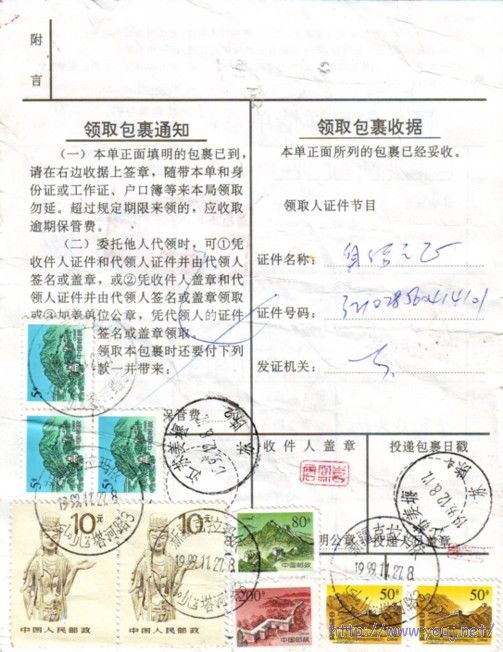 附
言
领取包裹通知
（一）本单正面填明的包裹已到，
请在右边收据上签章，随带本单和身
份证或工作证、户口簿等来本局领取
勿延。超过规定期限来领的，应收取
逾期保管费。
（二）委托他人代领时，可①凭
收件人证件和代领人证件并由代领人
签名或盖章，或②凭收件人盖章和代
领人证件并由代领人签名或盖章领取
或③加盖单位公章，凭代领人的证件
签名或盖章领取。
领取本包裹时还要付下列
款一并带来：
保管费
领取包裹收据
本单正面所列的包裹已经妥收。
领取人证件节目
证件名称：
证件号码：
发证机关：
收件人盖章
投递包裹日戳
公章
投递人员盖章
10元
中国人民邮政
10元
中国人民邮政
80分
中国邮政
200分
中国邮政
50分
50分
1999.11.27.8
1999.11.27.8
1999.12.8.12
http://www.ycqj.net/